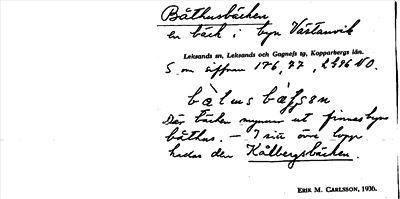 Båthusbäcken
en bäck i byn Västanvik
Leksands sn, Leksands och Gagnefs tg, Kopparbergs län.
S om siffran 176,77, 2596 NO.
bàtusbäʃsən
Där bäcken mynnar ut finnes byns
båthus. — I sitt övre lopp
kallas den Kålbergsbäcken.
ERIK M. CARLSSON, 1936.